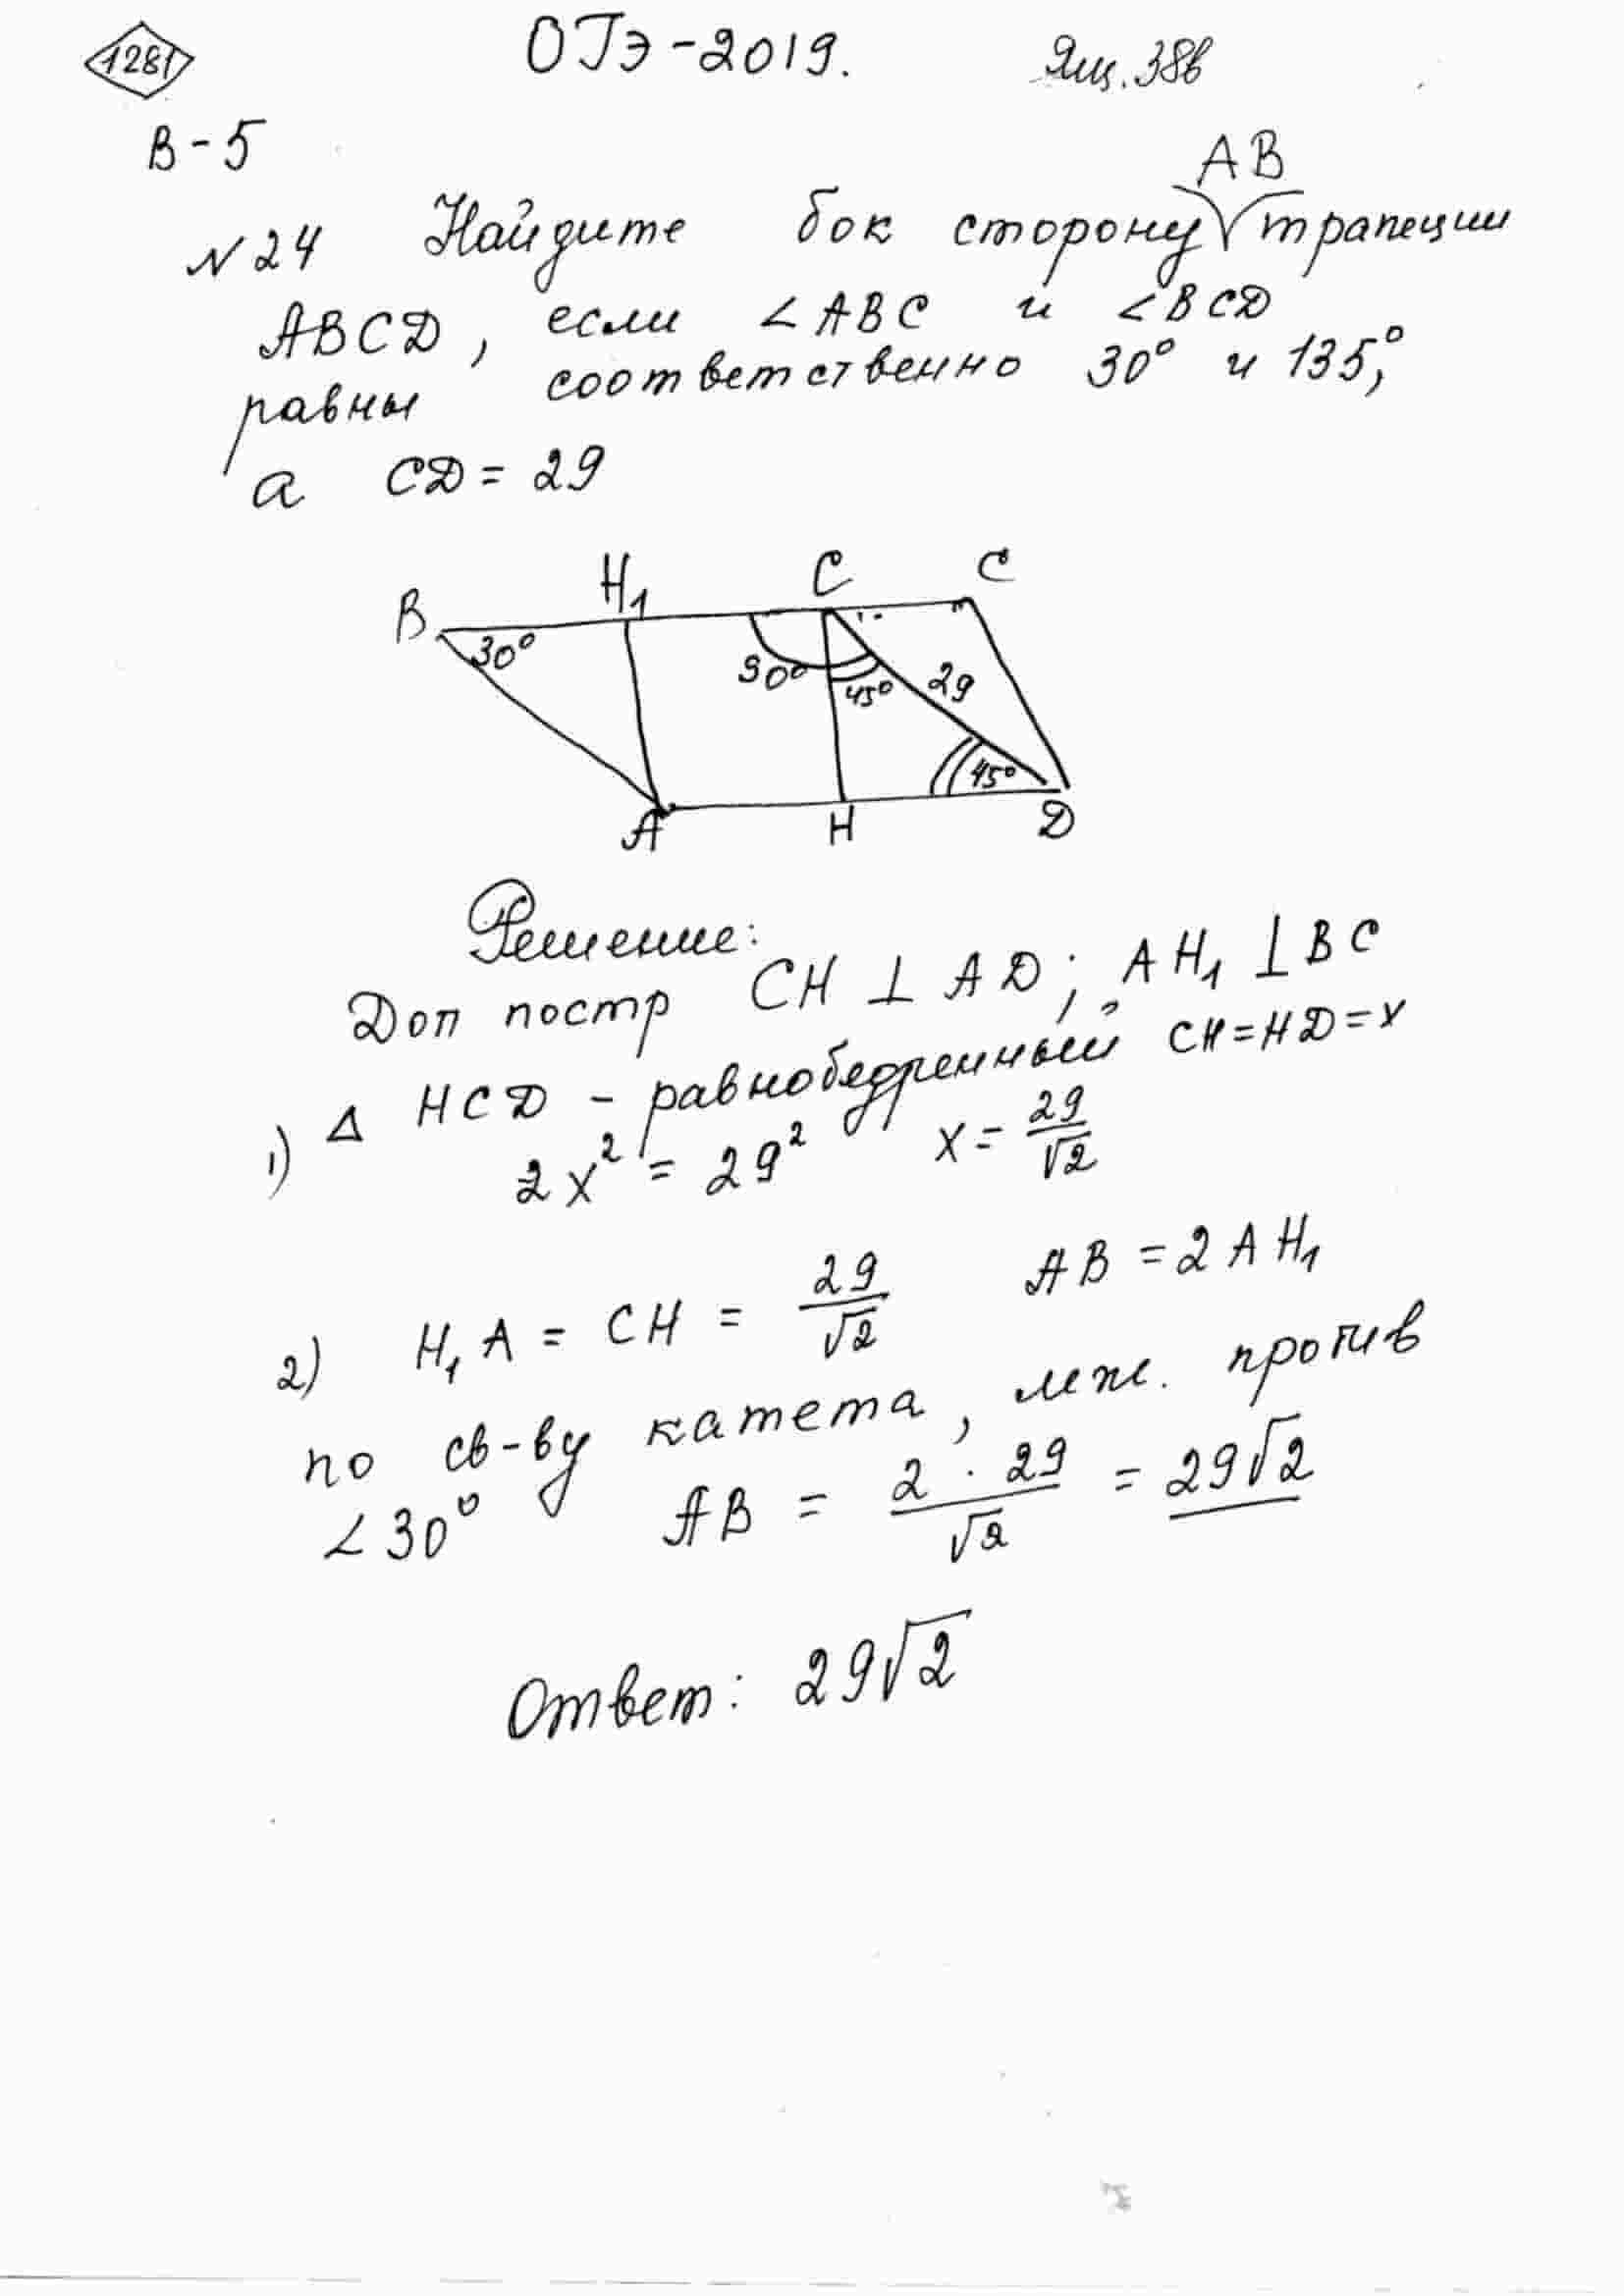 1281
ОГЭ-2019.
Ящ. 38в
В-5
АВ
№24 Найдите бок сторону трапеции
АВСD, если ∠АВС и ∠ВСD
равны соответственно 30° и 135,°
а СD = 29
В H₁ С С
30° 90° 45° 29
45°
А Н D
Решение:
Доп постр СН ⊥ АD; АН₁ ⊥ ВС
1) Δ НСD - равнобедренный СН=НD=х
2х² = 29² х = 29/√2
2) Н₁А = СН = 29/√2 АВ = 2АН₁
по св-ву катета, леж. против
∠30° АВ = 2 · 29/√2 = 29√2
Ответ: 29√2